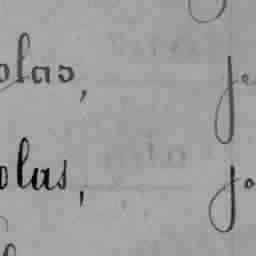 olas, je
olas, jo